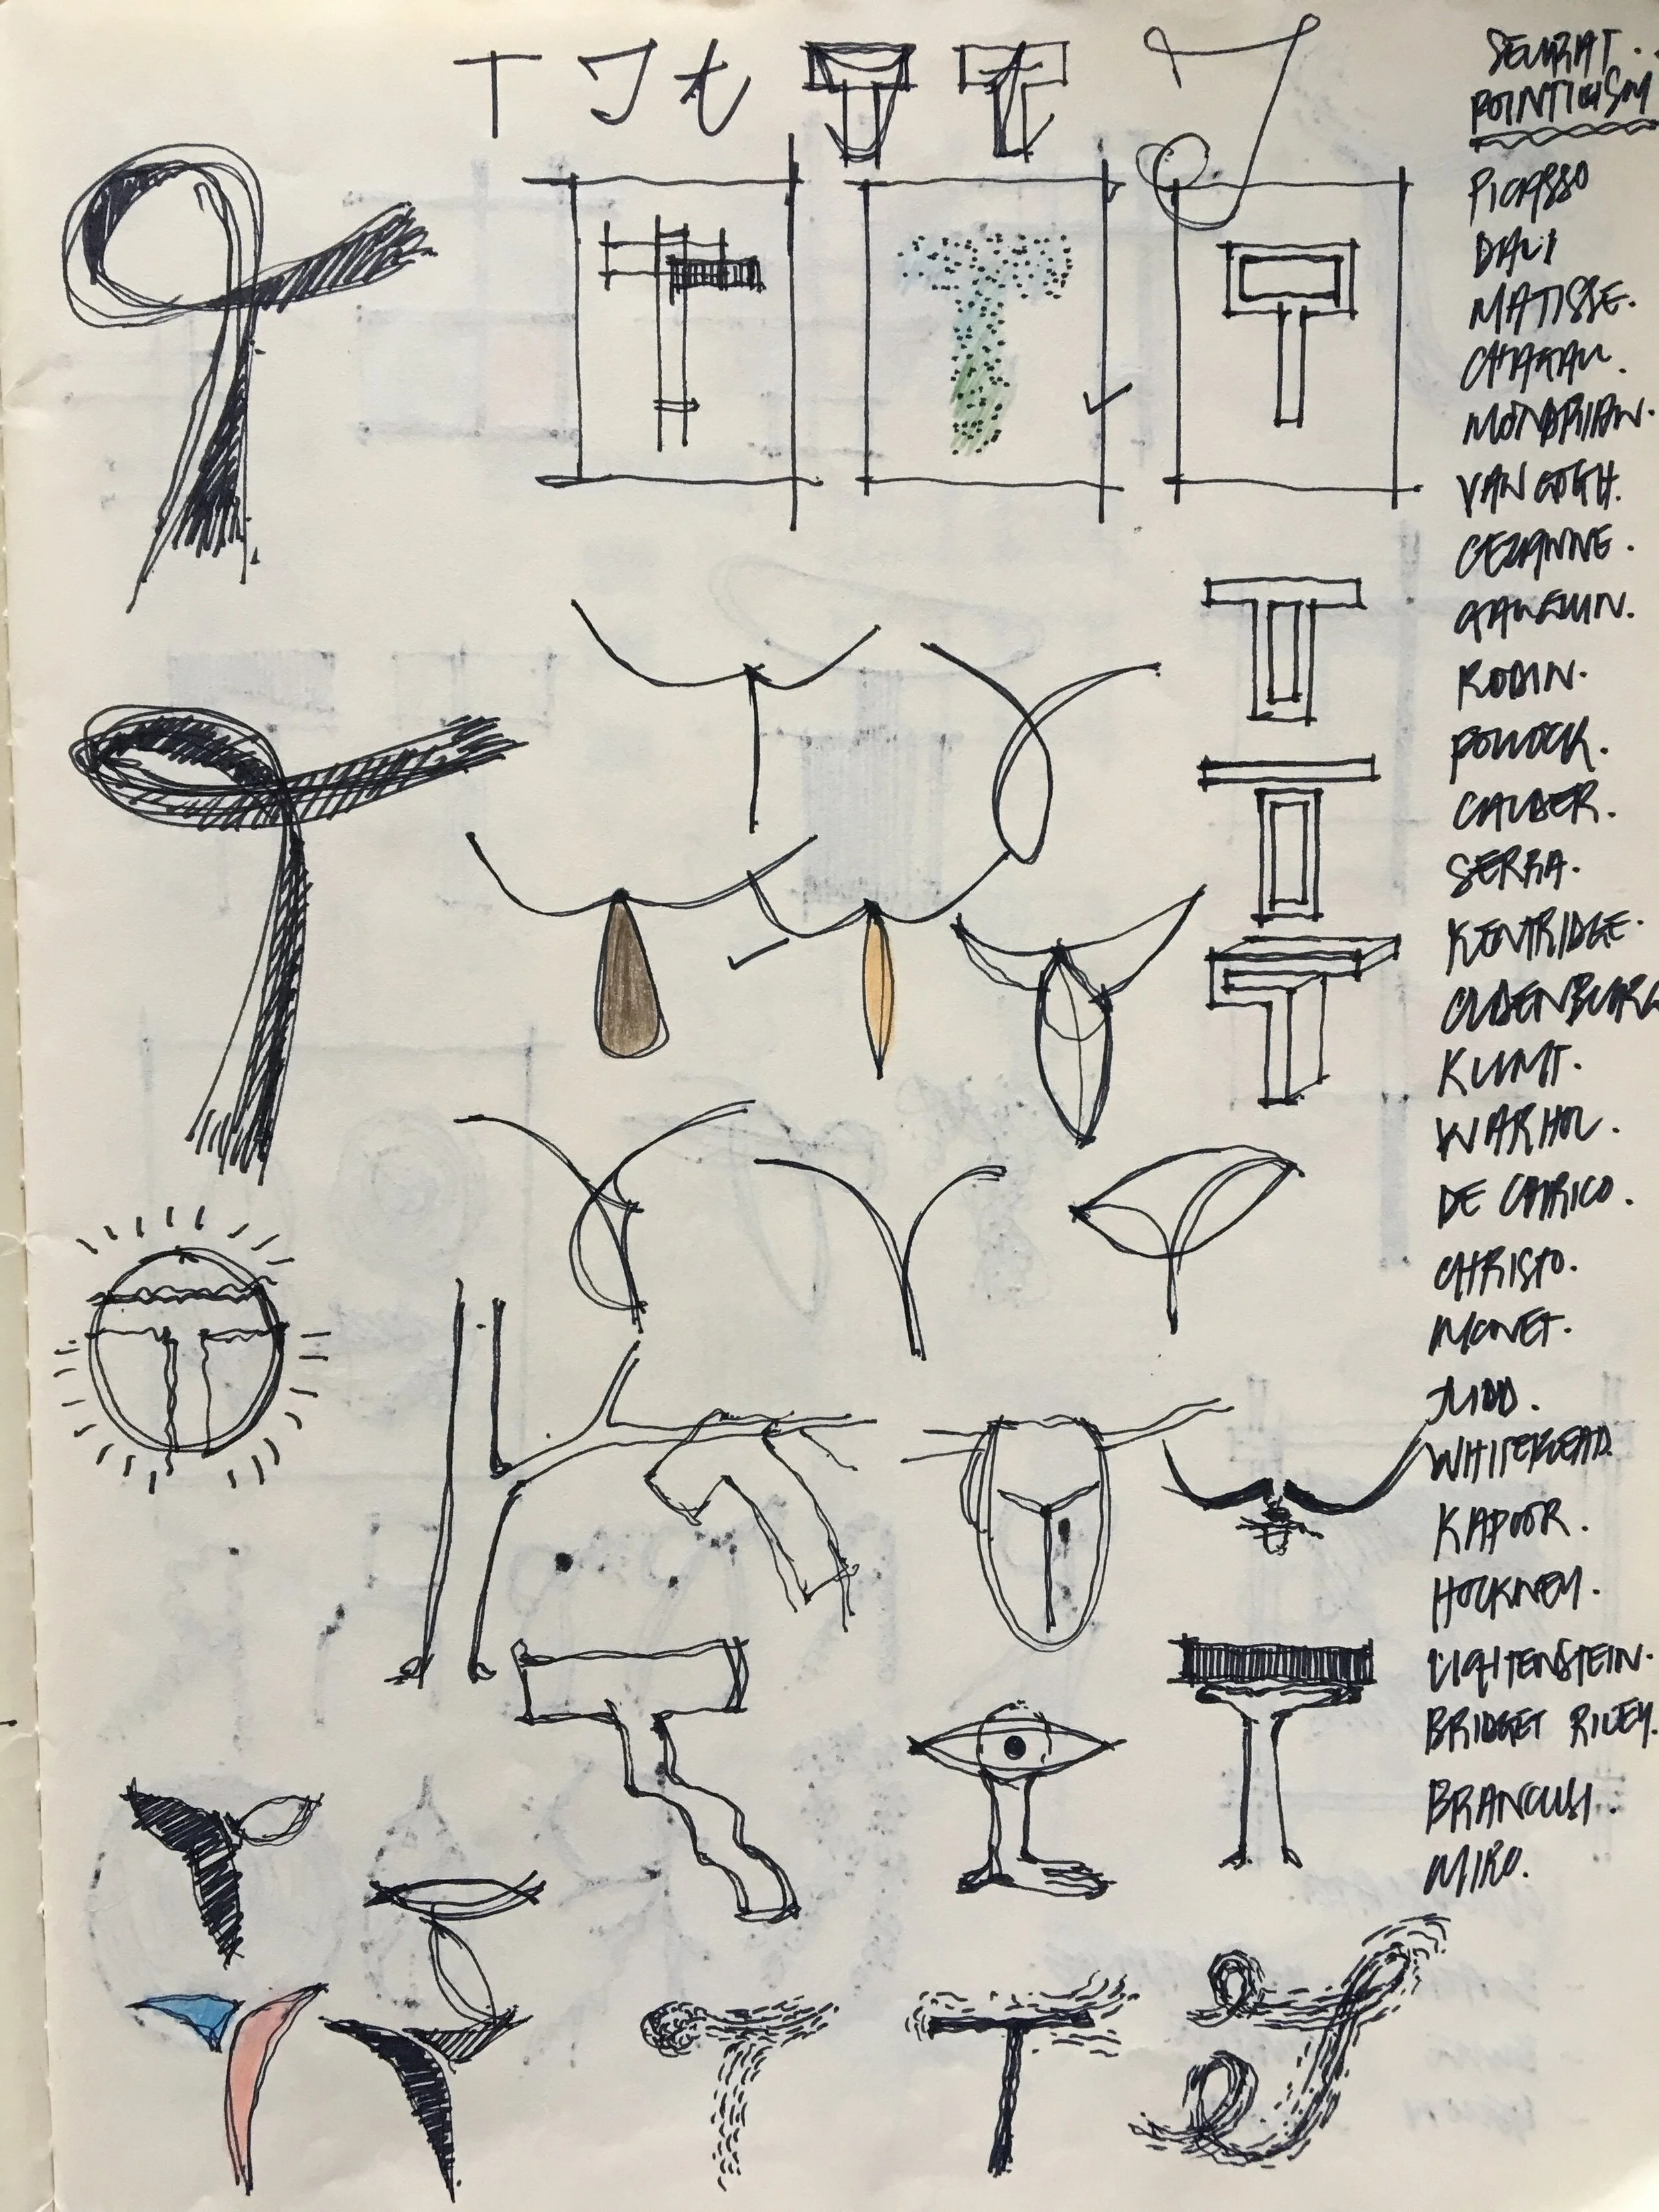 T T t T T T
SEURAT.
POINTILISM
PICASSO
DALI
MATISSE.
CHAGALL.
MONDRIAN.
VAN GOGH.
CEZANNE.
GAUGUIN.
RODIN.
POLLOCK.
CALDER.
SERRA.
KENTRIDGE.
OLDENBURG
KLIMT.
WARHOL.
DE CHIRICO.
CHRISTO.
MONET.
JUDD.
WHITEREAD.
KAPOOR.
HOCKNEY.
LICHTENSTEIN.
BRIDGET RILEY.
BRANCUSI.
MIRO.